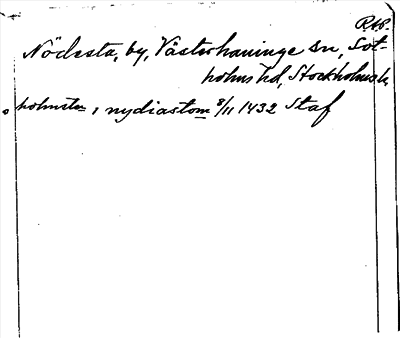 RAP.
Nödesta, by, Västerhaninge sn, Sot-
holms hd, Stockholms l.
holmsten, i nydiastom 8/11 1432 Staf